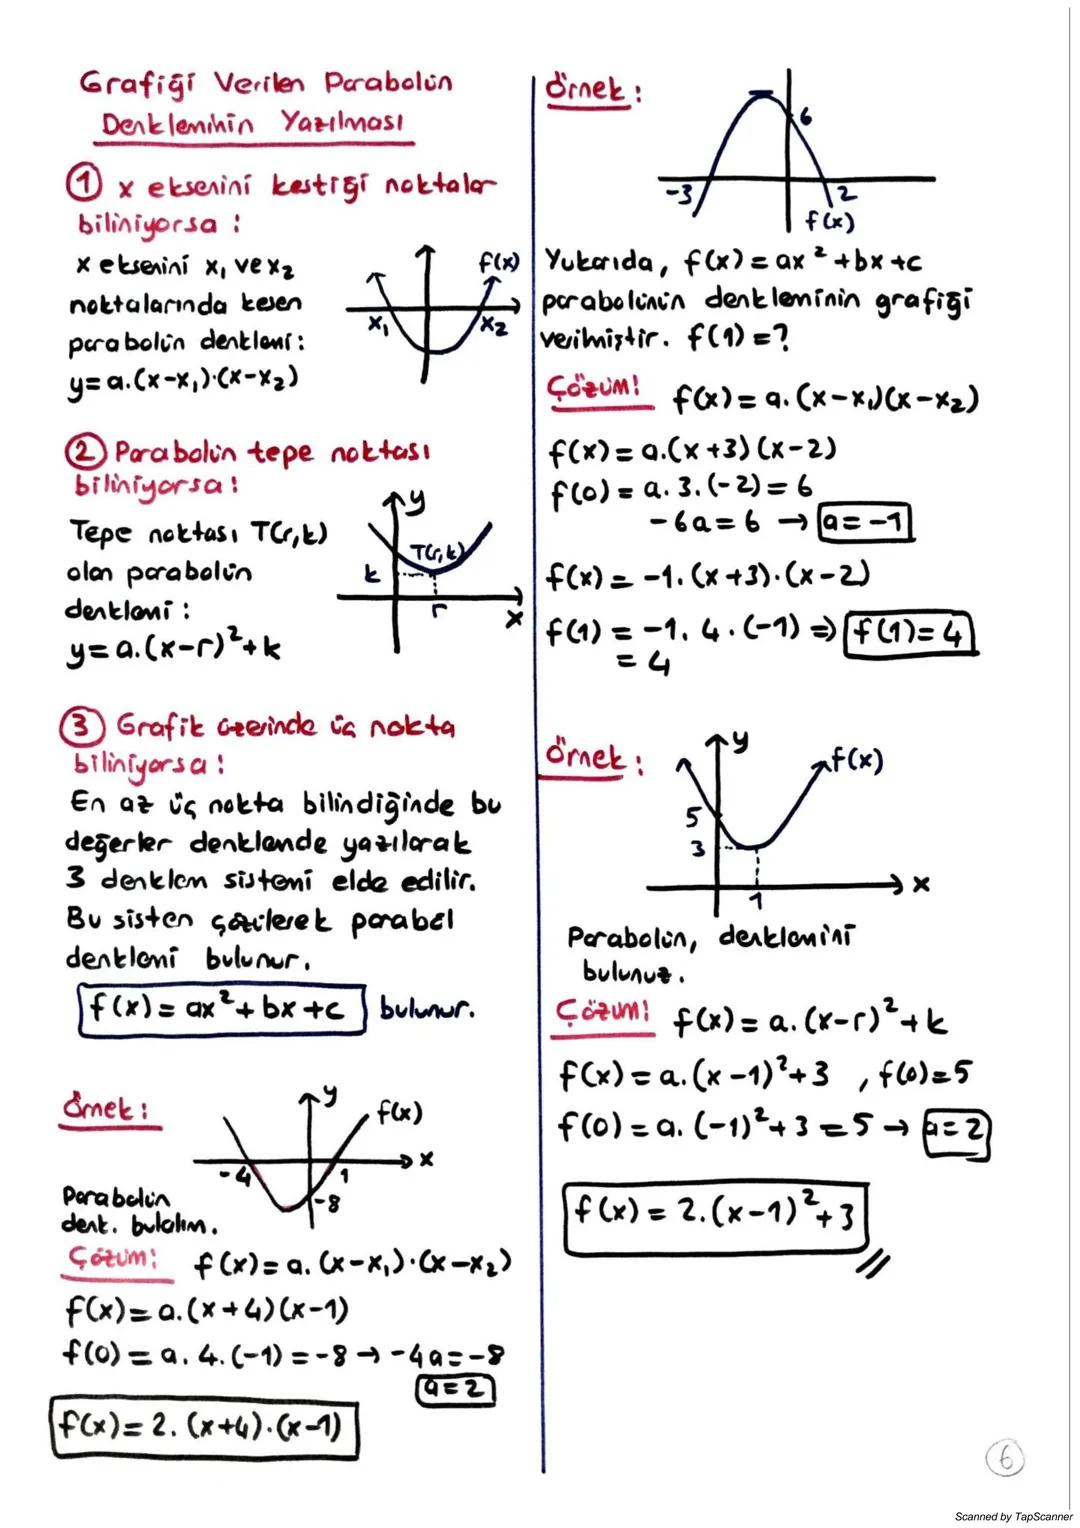 Grafiği Verilen Parabolün
Denkleminin Yazılması
① x eksenini kestiği noktalar
biliniyorsa :
x eksenini x₁ ve x₂
noktalarında kesen
parabolün denklemi :
y = a.(x-x₁)·(x-x₂)
f(x)
x₁
x₂
② Parabolün tepe noktası
biliniyorsa :
Tepe noktası T(r,k)
olan parabolün
denklemi :
y = a.(x-r)²+k
y
T(r,k)
k
r
x
③ Grafik üzerinde üç nokta
biliniyorsa :
En az üç nokta bilindiğinde bu
değerler denklemde yazılarak
3 denklem sistemi elde edilir.
Bu sistem çözülerek parabol
denklemi bulunur.
f(x) = ax² + bx + c bulunur.
Örnek :
y
f(x)
x
-4
1
-8
Parabolün
denk. bulalım.
Çözüm: f(x) = a.(x-x₁)·(x-x₂)
f(x) = a.(x+4)(x-1)
f(0) = a.4.(-1) = -8 → -4a = -8
a = 2
f(x) = 2.(x+4)·(x-1)
Örnek :
6
-3
2
f(x)
Yukarıda, f(x) = ax² + bx + c
parabolünün denkleminin grafiği
verilmiştir. f(1) = ?
Çözüm: f(x) = a.(x-x₁)(x-x₂)
f(x) = a.(x+3)(x-2)
f(0) = a.3.(-2) = 6
-6a = 6 → a = -1
f(x) = -1.(x+3)·(x-2)
f(1) = -1.4.(-1) ⇒ f(1) = 4
= 4
Örnek :
y
f(x)
5
3
1
x
Parabolün, denklemini
bulunuz.
Çözüm: f(x) = a.(x-r)²+k
f(x) = a.(x-1)²+3 , f(0)=5
f(0) = a.(-1)²+3 = 5 → a = 2
f(x) = 2.(x-1)²+3
6
Scanned by TapScanner